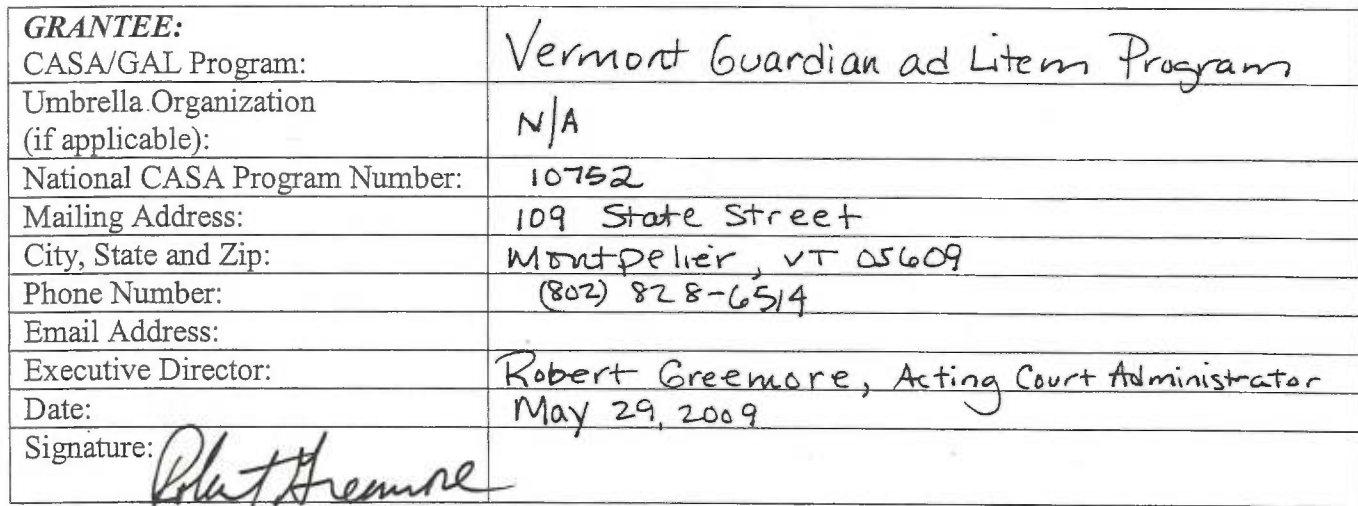 GRANTEE:
CASA/GAL Program: Vermont Guardian ad Litem Program
Umbrella Organization
(if applicable): N/A
National CASA Program Number: 10752
Mailing Address: 109 State Street
City, State and Zip: Montpelier, VT 05609
Phone Number: (802) 828-6514
Email Address:
Executive Director: Robert Greemore, Acting Court Administrator
Date: May 29, 2009
Signature: Robert Greemore